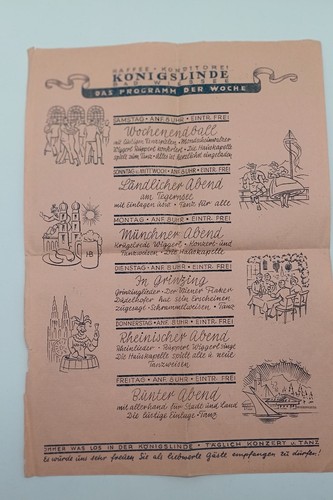 KAFFEE · KONDITOREI
KÖNIGSLINDE
BAD WIESSEE
DAS PROGRAMM DER WOCHE
SAMSTAG · ANF. 8 UHR · EINTR. FREI
Wochenendball
spielt zum Tanz · Alles ist herzlichst eingeladen
SONNTAG u. MITTWOCH · ANF. 8 UHR · EINTR. FREI
Ländlicher Abend
am Tegernsee
mit Einlagen · Tanz für alle
MONTAG · ANF. 8 UHR · EINTR. FREI
Münchner Abend
Wiggerl · Konzert- und
Tanzweisen · Die Hauskapelle
HB
DIENSTAG · ANF. 8 UHR · EINTR. FREI
In Grinzing
Grinzinglieder · Der Wiener Fiaker
hat sein Erscheinen
zugesagt · Schrammelweisen · Tanz
DONNERSTAG · ANF. 8 UHR · EINTR. FREI
Rheinischer Abend
Rheinlieder · Ruppert Wiggerl singt
Die Hauskapelle spielt alte u. neue
Tanzweisen
FREITAG · ANF. 8 UHR · EINTR. FREI
Bunter Abend
mit allerhand für Stadt und Land
Die lustige Einlage · Tanz
IMMER WAS LOS IN DER KÖNIGSLINDE · TÄGLICH KONZERT u. TANZ
Es würde uns sehr freuen Sie als liebwerte Gäste empfangen zu dürfen!